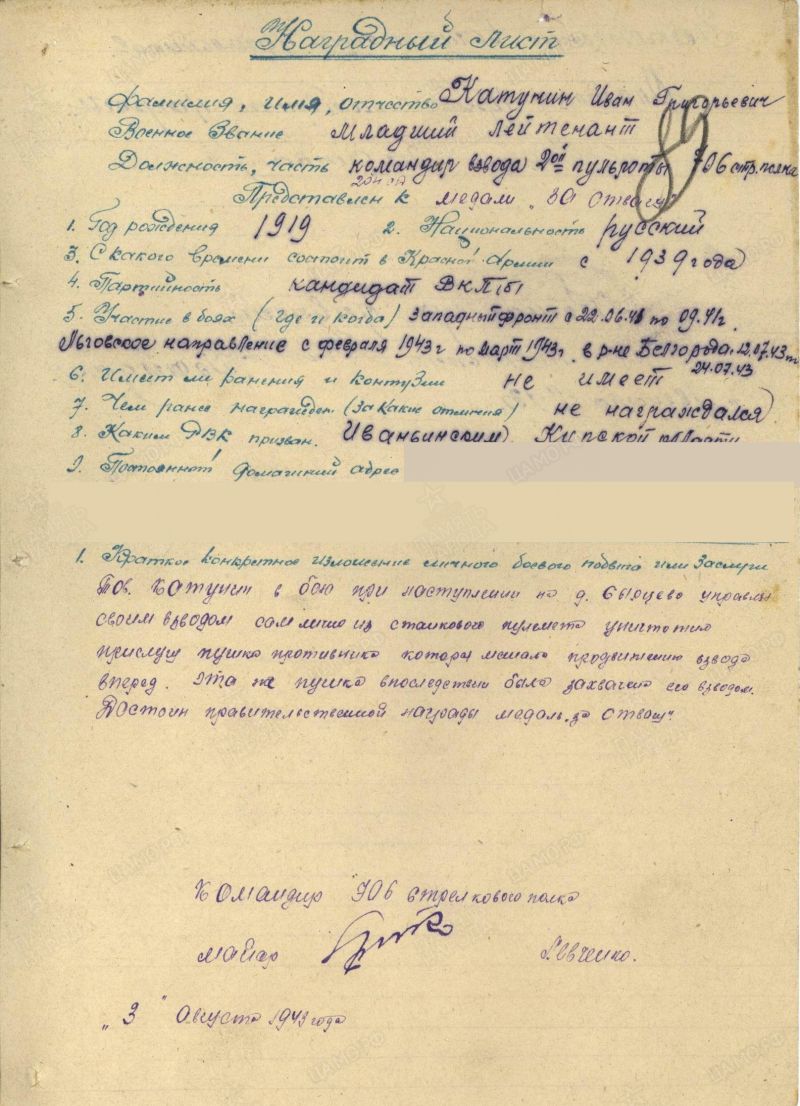 Наградный лист
Фамилия, имя, отчество Катунин Иван Григорьевич
Военное звание младший лейтенант
Должность, часть командир взвода 2ой пульроты 706 стр. полка
204 сд
Представлен к медали "За отвагу"
1. Год рождения 1919 2. Национальность русский
3. С какого времени состоит в Красной Армии с 1939 года
4. Партийность кандидат ВКП(б)
5. Участие в боях (где и когда) Западный фронт с 22.06.41 по 09.41г.
Льговское направление с февраля 1943г по март 1943г. в р-не Белгорода. 12.07.43 по
24.07.43
6. Имеет ли ранения и контузии не имеет
7. Чем ранее награжден (за какие отличия) не награждался
8. Каким РВК призван. Иваньинским, области
9. Постоянный домашний адрес
1. Краткое конкретное изложение личного боевого подвига или заслуги
Тов. Катунин в бою при наступлении на д. Сырцево управляя
своим взводом сам лично из станкового пулемета уничтожил
прислугу пушки противника которая мешала продвижению взвода
вперед. Эта же пушка впоследствии была захвачена его взводом.
Достоин правительственной награды медаль "за отвагу"
Командир 706 стрелкового полка
майор Левченко.
"3" августа 1943 года
84
ЦАМО.РФ